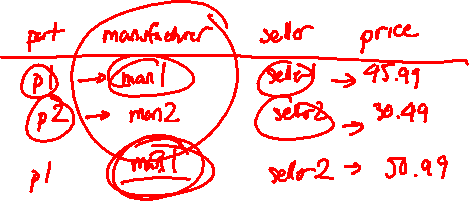 part manufacturer seller price
p1 → man1 seller1 → 45.99
p2 → man2 seller2 → 30.49
p1 seller2 → 50.99